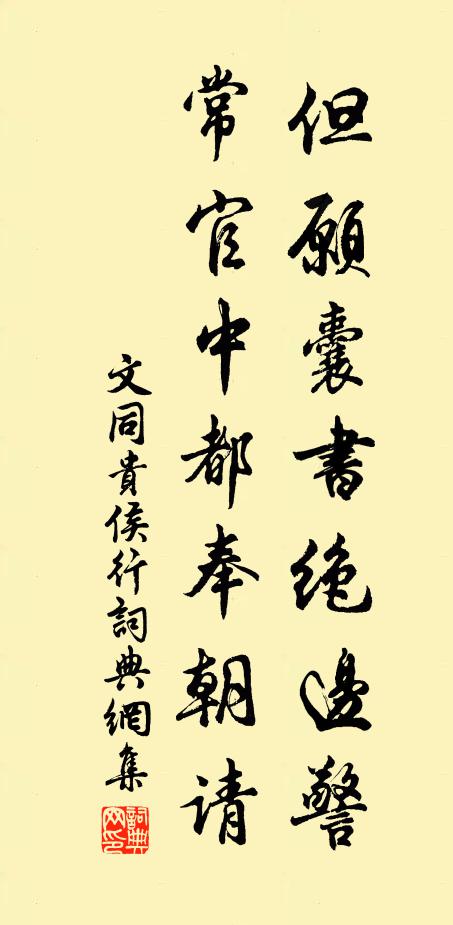 但願囊書絶邊警
常官中都奉朝请
文同貴侯行詞典網集
詞典网印